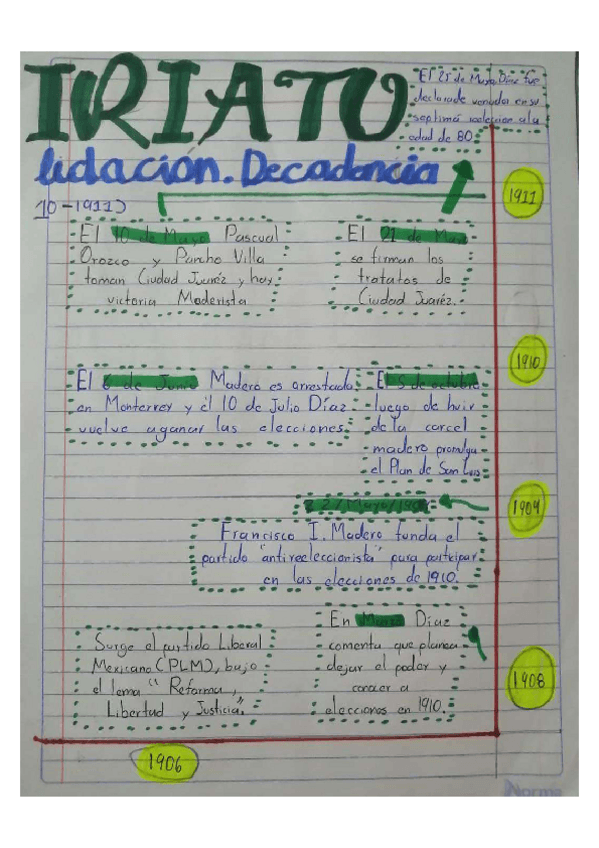 IRIATO
lidacion. Decadencia
10-1911)
El 25 de Mayo Díaz fue
declarado vencedor en su
septima reelecion a la
edad de 80
1911
El 10 de Mayo Pascual
Orozco y Pancho Villa
toman Ciudad Juaréz y hay
victoria Maderista
El 21 de
se firman los
tratatos de
Ciudad Juaréz.
1910
El 6 de Junio Madero es arrestado
en Monterrey y el 10 de Julio Díaz
vuelve a ganar las elecciones
El 5 de octubre
luego de huir
de la carcel
madero promulga
el Plan de San Luis
1909
Francisco I. Madero funda el
partido "antireeleccionista" para participar
en las elecciones de 1910.
En Marzo Díaz
comenta que planea
dejar el poder y
a
elecciones en 1910.
1908
Surge el partido Liberal
Mexicano (PLM), bajo
el lema "Reforma,
Libertad y Justicia".
1906
Norma